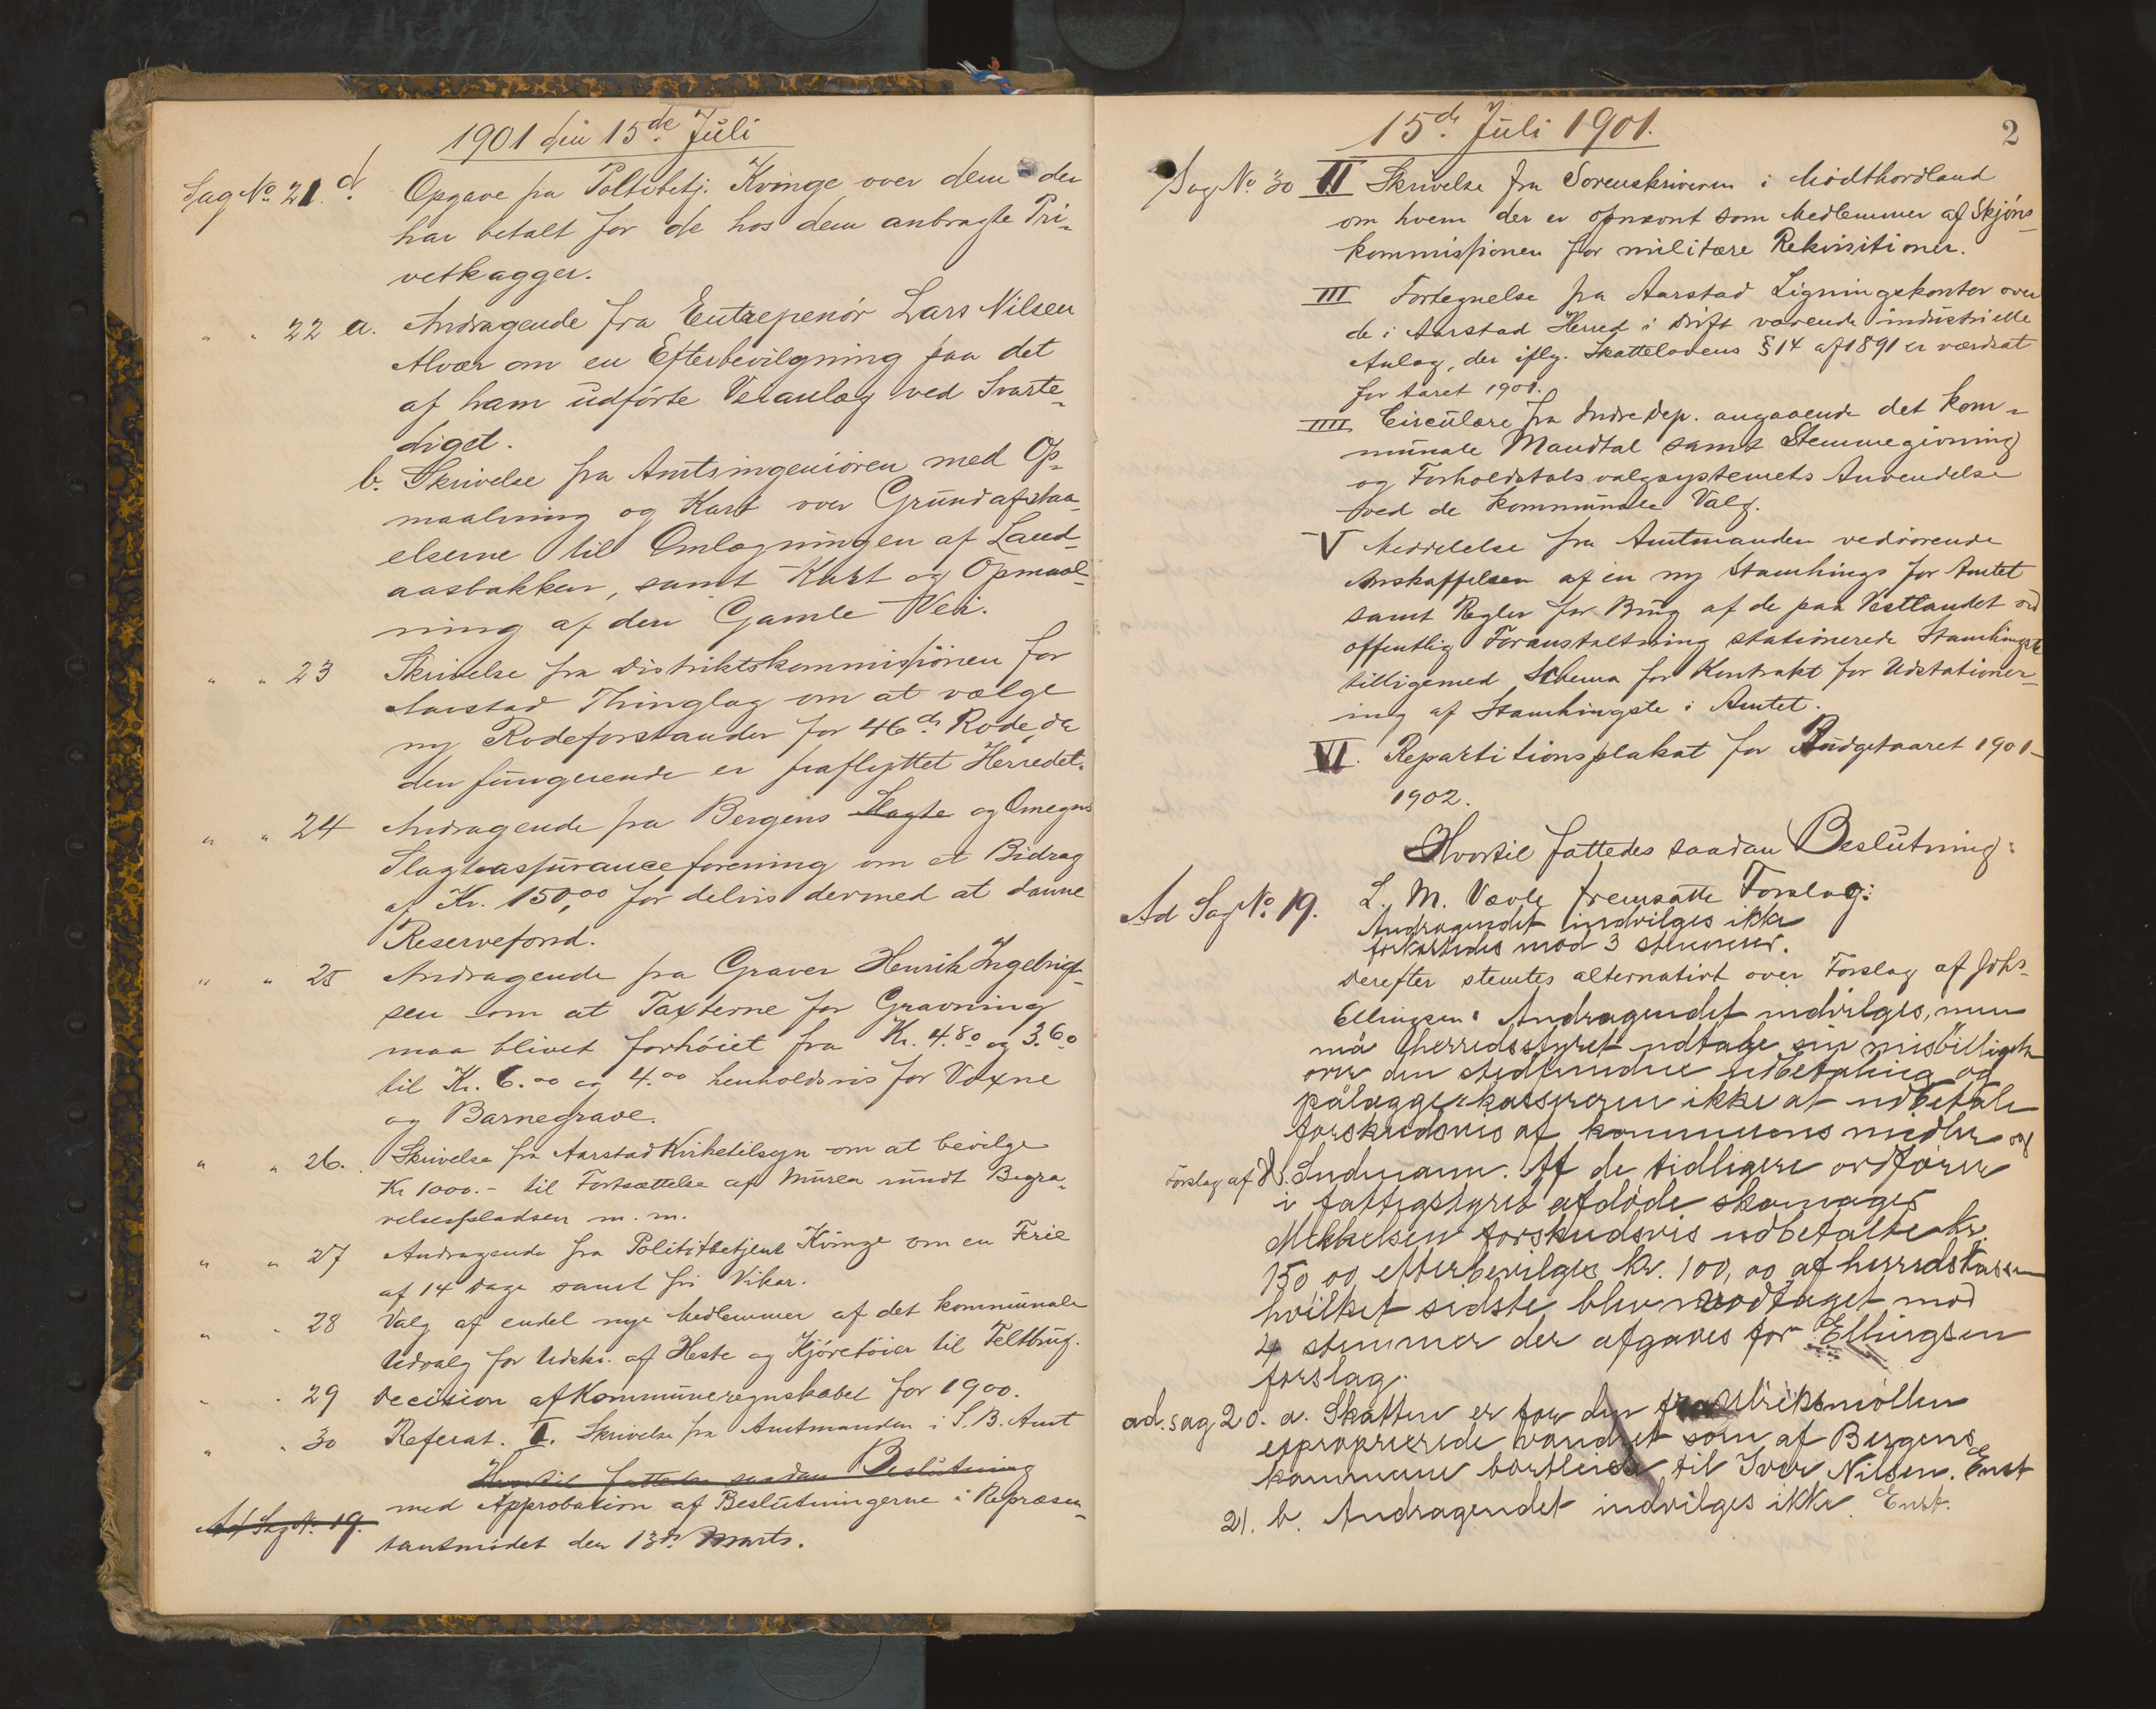 1901 den 15de Juli
Sag No 21. d. Opgave fra Politibetj. Kvinge over dem der
har betalt for de hos dem anbragte Pri-
vetkagger.
" " 22 a. Andragende fra Entrepenör Lars Nilsen
Alvær om en Efterbevilgning paa det
af ham udförte Veianlæg ved Svarte-
diget.
b. Skrivelse fra Amtsingeniören med Op-
maalning og Kart over Grundafstaa-
elserne til Omlægningen af Land-
aasbakken, samt Kart og Opmaal-
ning af den Gamle Vei.
" " 23 Skrivelse fra Distriktskommissionen for
Aarstad Thinglag om at vælge
ny Rodeforstander for 46de Rode, da
den fungerende er fraflyttet Herredet.
" " 24 Andragende fra Bergens Slagte og Omegns
Slagteassuranceforening om et Bidrag
af Kr. 150,00 for delvis dermed at danne
Reservefond.
" " 25 Andragende fra Graver Henrik Ingebrigt-
sen om at Taxterne for Gravning
maa blivet forhöiet fra Kr. 4.80 og 3.60
til Kr. 6.00 og 4.00 henholdsvis for Voxne
og Barnegrave.
" " 26. Skrivelse fra Aarstad Kirketilsyn om at bevilge
Kr 1000.- til Fortsættelse af Muren rundt Begra-
velsespladsen m. m.
" " 27 Andragende fra Politibetjent Kvinge om en Ferie
af 14 Dage samt fri Vikar.
" " 28 Valg af endel nye Medlemmer af det kommunale
Udvalg for Udskr. af Heste og Kjöretöier til Feltbrug.
" " 29 Decision af Kommuneregnskabet for 1900.
" " 30 Referat. I. Skrivelse fra Amtmanden i S. B. Amt
Hvortil fattedes saadan Beslutning
med Approbation af Beslutningerne i Repræsen-
Ad Sag No 19. tantmödet den 13de Marts.
15de Juli 1901.
2
Sag No 30 II Skrivelse fra Sorenskriveren i Midthordland
om hvem der er opnævnt som Medlemmer af Skjöns-
kommissionen for militære Rekvisitioner.
III Fortegnelse fra Aarstad Ligningskontor over
de i Aarstad Herred i Drift værende industrielle
Anlæg, der iflg. Skattelovens § 14 af 1891 er værdsat
for Aaret 1901.
IIII Circulære fra Indredep. angaaende det kom-
munale Mandtal samt Stemmegivning
og Forholdstalsvalgsystemets Anvendelse
ved de kommunale Valg.
V Meddelelse fra Amtmanden vedrörende
Anskaffelsen af en ny Stamhingst for Amtet
samt Regler for Brug af de paa Vestlandet ved
offentlig Foranstaltning stationerede Stamhingste
tilligemed Schema for Kontrakt for Udstationer-
ing af Stamhingste i Amtet.
VI. Repartitionsplakat for Budgetaaret 1901-
1902.
Hvortil fattedes saadan Beslutning:
Ad Sag No 19. L. M. Vævle fremsatte Forslag:
Andragendet indvilges ikke
forkastedes mod 3 stemmer.
Derefter stemtes alternativt over Forslag af Johs.
Ellingsen: Andragendet indvilges, men
må herredsstyret udtale sin misbilligelse
over den stedfundne udbetaling og
pålægger kassereren ikke at udbetale
forskudsvis af kommunens midler og
Forslag af Lindmann. Af de tidligere ordförer
i fattigstyret afdöde skomager
Mikkelsen forskudsvis udbetalte kr.
150,00 efterbevilges kr. 100,00 af herredskassen
hvilket sidste blev modtaget mod
4 stemmer der afgaves for Ellingsen
forslag.
ad. sag 20. a. Skatten er for den fra Ulriksmöllen
exproprierede vandret som af Bergens
kommune bortleiede til Iver Nilsen. Enst
21. b. Andragendet indvilges ikke. Enst.